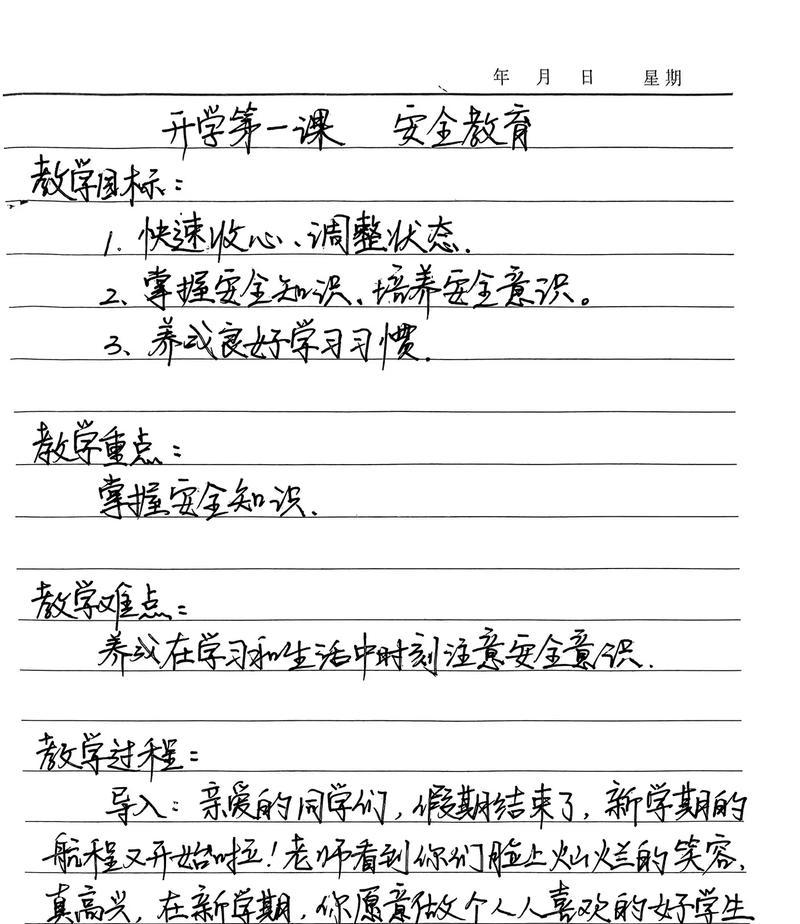 年 月 日 星期
开学第一课 安全教育
教学目标：
1. 快速收心、调整状态.
2、掌握安全知识、培养安全意识。
3、养成良好学习习惯.
教学重点：
掌握安全知识.
教学难点：
养成在学习和生活中时刻注意安全意识.
教学过程：
导入：亲爱的同学们，假期结束了，新学期的
航程又开始啦！老师看到你们脸上灿烂的笑容，
真高兴，在新学期，你愿意做个人人喜欢的好学生